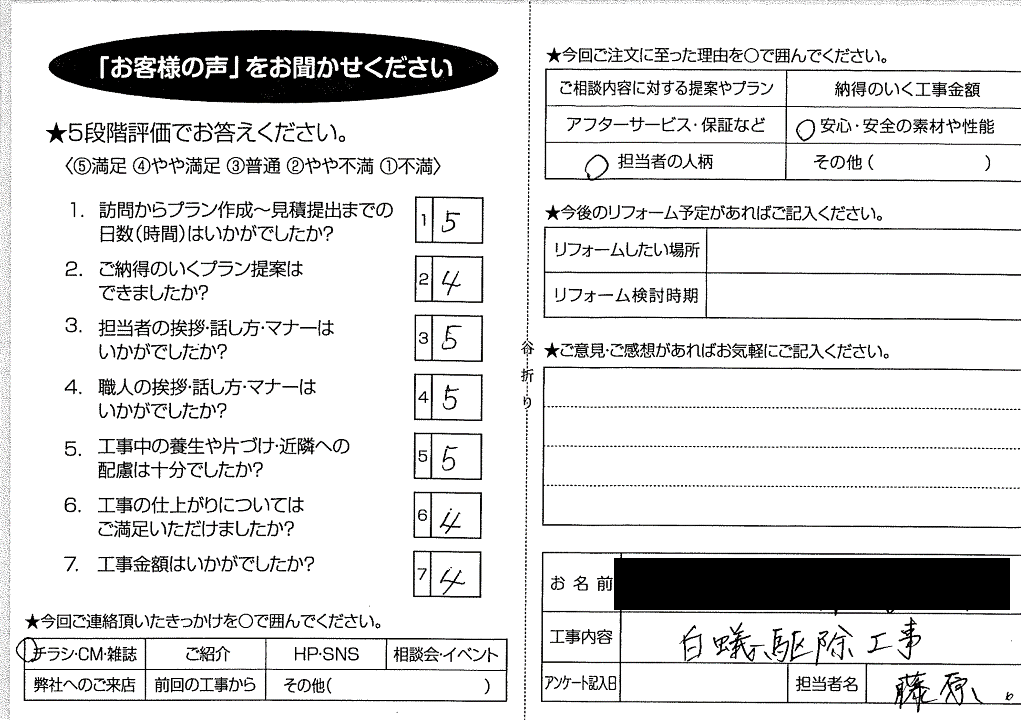 「お客様の声」をお聞かせください
★5段階評価でお答えください。
〈⑤満足 ④やや満足 ③普通 ②やや不満 ①不満〉
1. 訪問からプラン作成～見積提出までの
日数(時間)はいかがでしたか?
1 5
2. ご納得のいくプラン提案は
できましたか?
2 4
3. 担当者の挨拶・話し方・マナーは
いかがでしたか?
3 5
4. 職人の挨拶・話し方・マナーは
いかがでしたか?
4 5
5. 工事中の養生や片づけ・近隣への
配慮は十分でしたか?
5 5
6. 工事の仕上がりについては
ご満足いただけましたか?
6 4
7. 工事金額はいかがでしたか?
7 4
★今回ご連絡頂いたきっかけを○で囲んでください。
チラシ・CM・雑誌 ご紹介 HP・SNS 相談会・イベント
弊社へのご来店 前回の工事から その他( )
谷折り
★今回ご注文に至った理由を○で囲んでください。
ご相談内容に対する提案やプラン 納得のいく工事金額
アフターサービス・保証など 安心・安全の素材や性能
担当者の人柄 その他( )
★今後のリフォーム予定があればご記入ください。
リフォームしたい場所
リフォーム検討時期
★ご意見・ご感想があればお気軽にご記入ください。
お名前
工事内容 白蟻駆除工事
アンケート記入日 担当者名 藤原